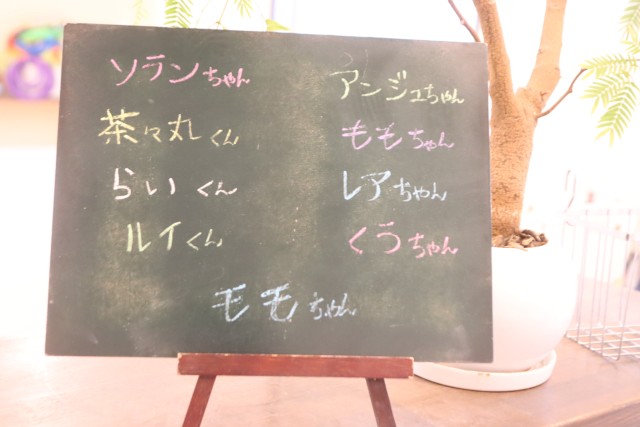 ソランちゃん
茶々丸くん
らいくん
ルイくん
アンジュちゃん
ももちゃん
レアちゃん
くうちゃん
モモちゃん